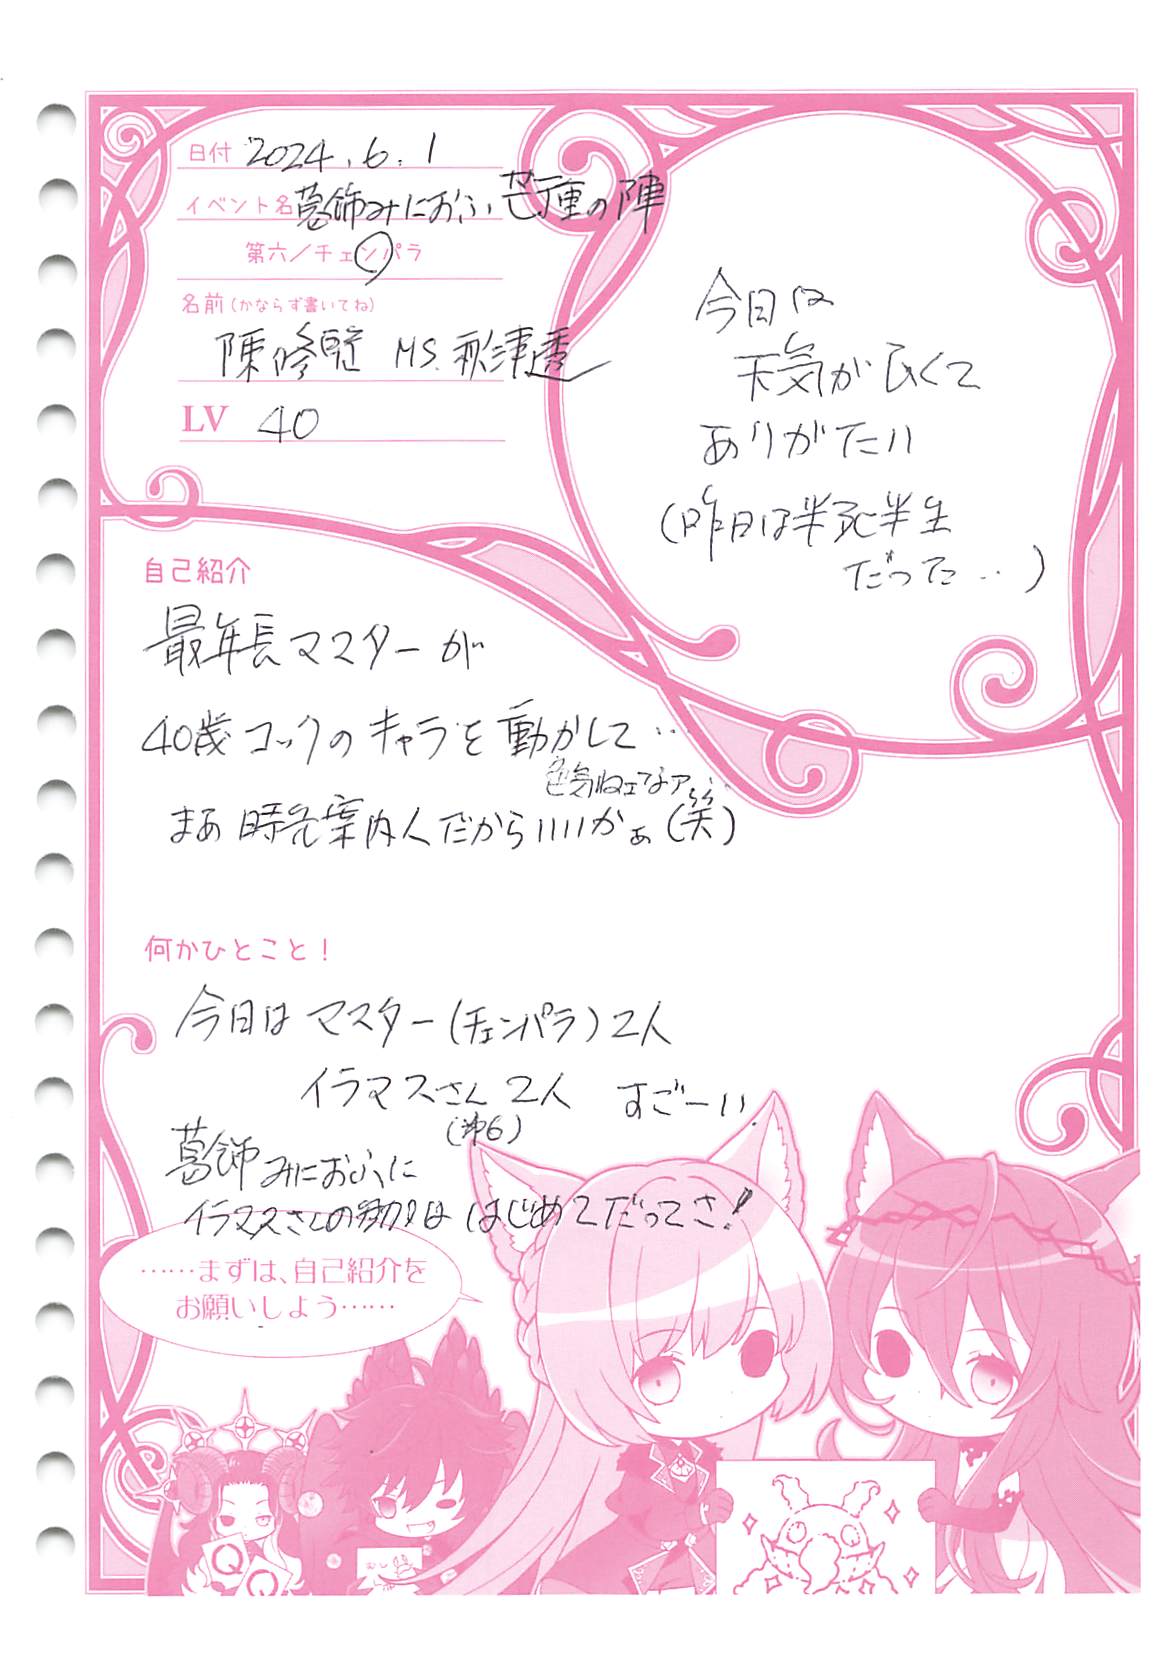 日付 2024.6.1
イベント名 葛飾みにおふ 芒種の陣
第六／チェンパラ
名前(かならず書いてね)
陳修賢 MS.秋津透
LV 40
今日は
天気が良くて
ありがたい
(昨日は半死半生
だった‥)
自己紹介
最年長マスターが
40歳コックのキャラを動かして…
色気ねェなァ…
まあ時先案内人だからいいかぁ(笑)
何かひとこと！
今日は マスター(チェンパラ)2人
イラマスさん 2人 すごーい
(第6)
葛飾みにおふに
イラマスさんの参加は はじめてだってさ！
……まずは、自己紹介を
お願いしよう……
Q
Q